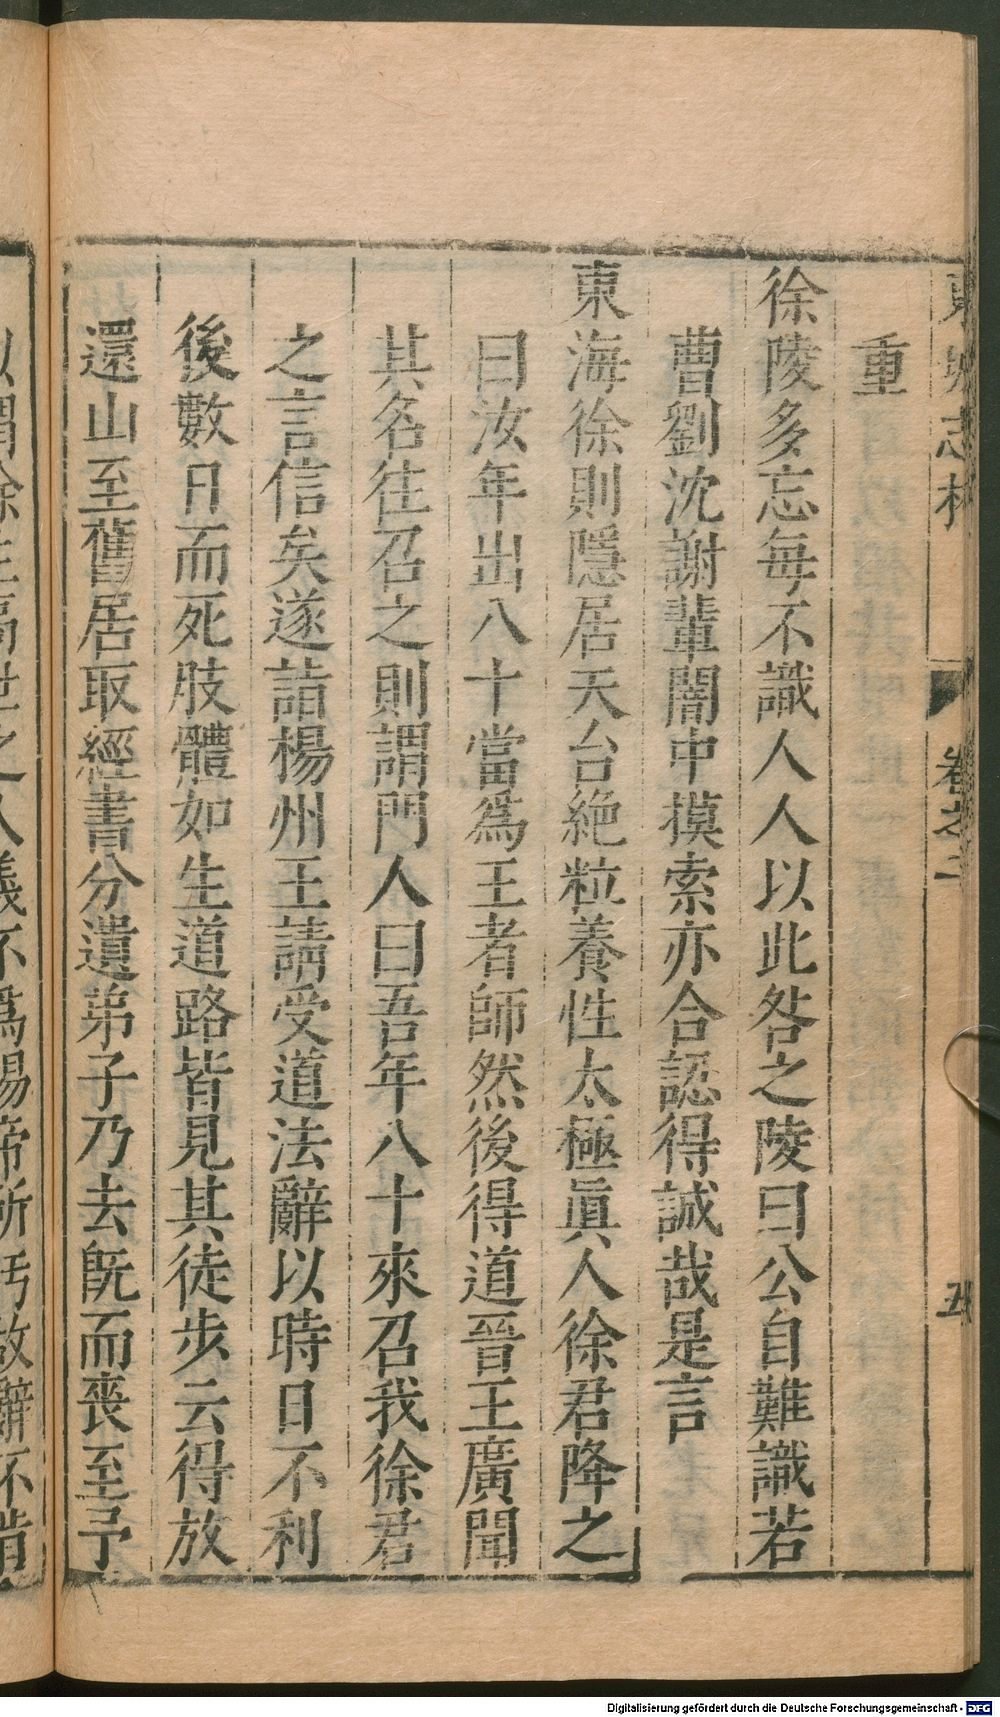 東坡志林 卷之二 五
重
徐陵多忘每不識人人以此咎之陵曰公自難識若
曹劉沈謝輩闇中摸索亦合認得誠哉是言
東海徐則隱居天台絶粒養性太極眞人徐君降之
曰汝年出八十當爲王者師然後得道晉王廣聞
其名往召之則謂門人曰吾年八十來召我徐君
之言信矣遂詣楊州王請受道法辭以時日不利
後數日而死肢體如生道路皆見其徒步云得放
還山至舊居取經書分遺弟子乃去旣而喪至予
以謂徐生高世之人義不爲煬帝所汚故辭不肯
Digitalisierung gefördert durch die Deutsche Forschungsgemeinschaft - DFG